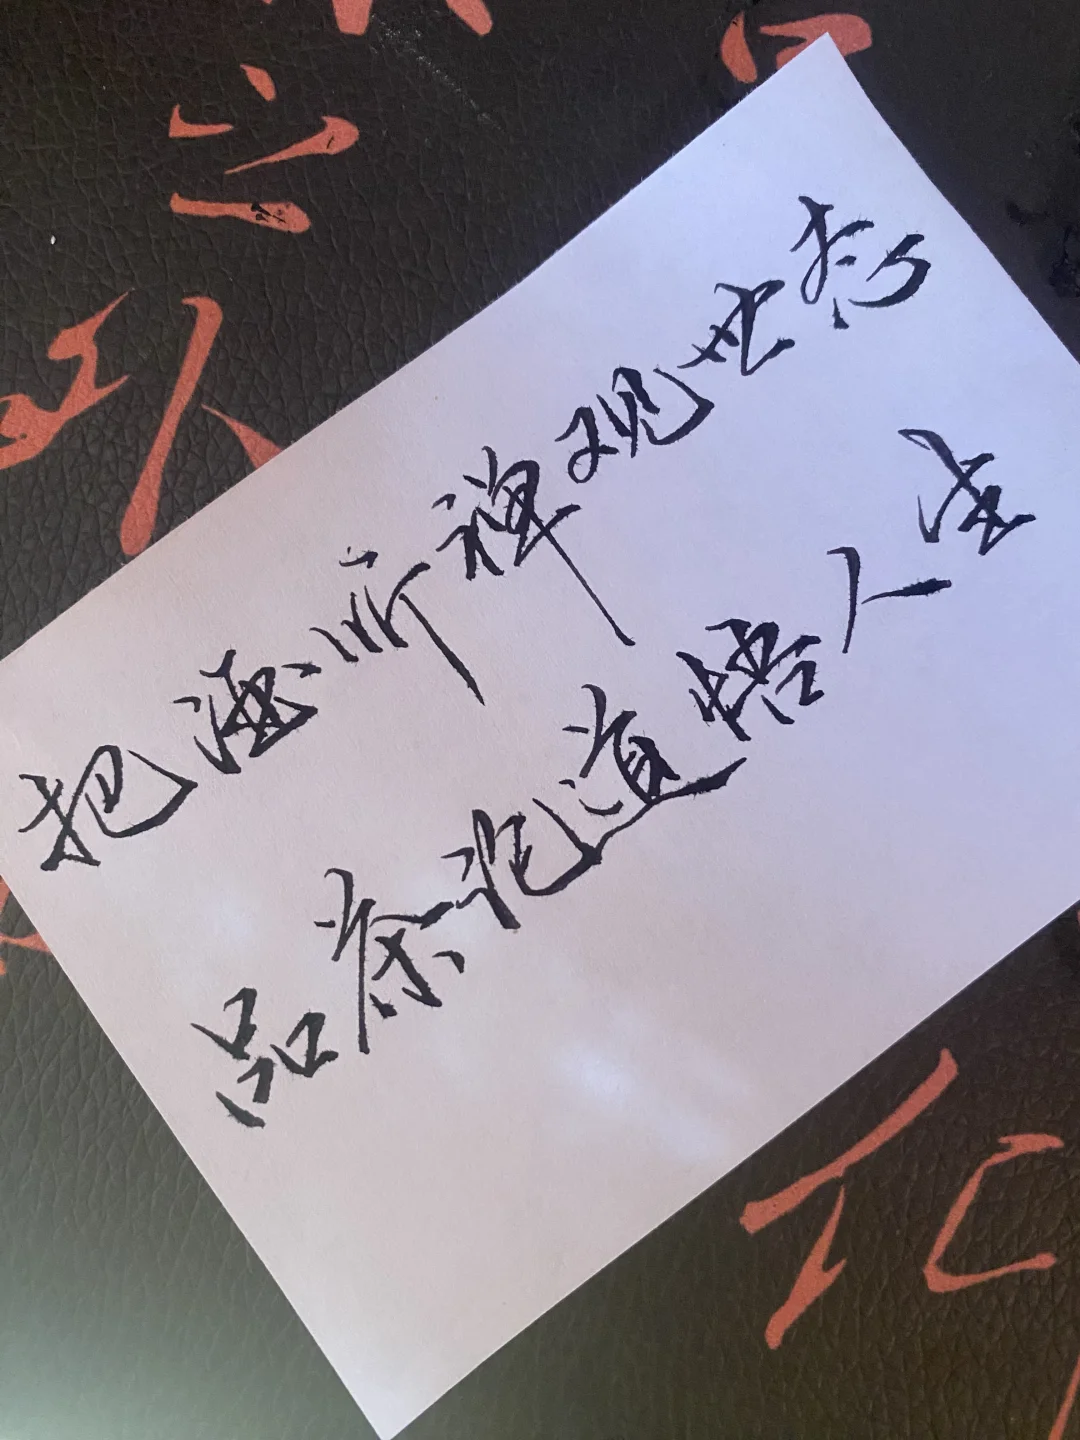 把酒听禅观世态
品茶论道悟人生